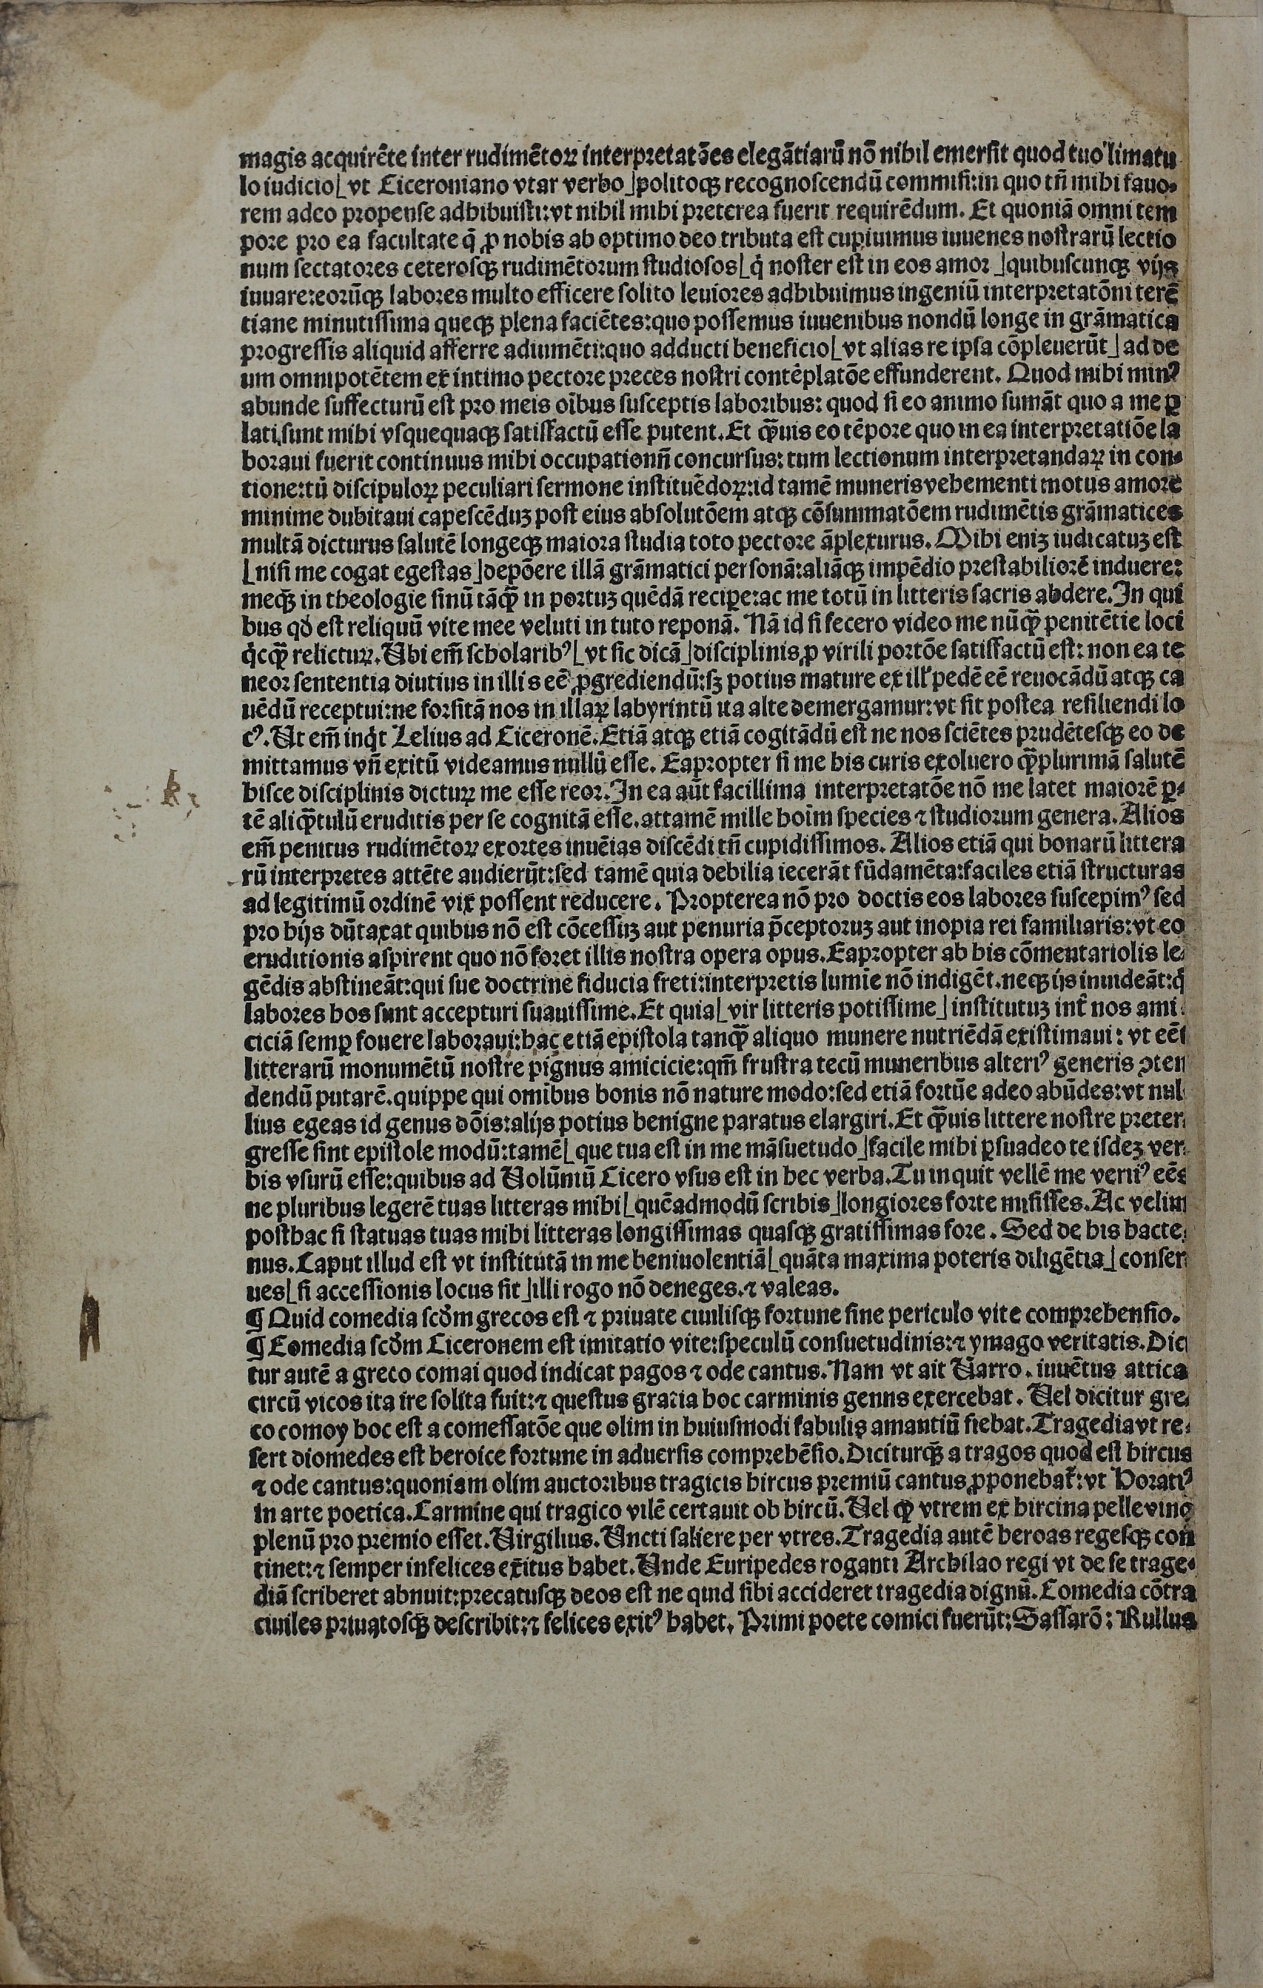 magis acquirēte inter rudimētoꝝ interpretatōes elegātiarū nō nihil emersit quod tuo limatu
lo iudicio⌊vt Ciceroniano vtar verbo⌋politoqꝫ recognoscendū commisi:in quo tñ mihi fauo-
rem adeo propense adhibuisti:vt nihil mihi preterea fuerit requirēdum. Et quoniā omni tem
pore pro ea facultate q̄ ꝓ nobis ab optimo deo tributa est cupiuimus iuuenes nostrarū lectio
num sectatores ceterosqꝫ rudimētorum studiosos⌊q̇ noster est in eos amor⌋quibuscunqꝫ vijs
iuuare:eorūqꝫ labores multo efficere solito leuiores adhibuimus ingeniū interpretatōni terē
tiane minutissima queqꝫ plena faciētes:quo possemus iuuenibus nondū longe in grāmatica
progressis aliquid afferre adiumēti:quo adducti beneficio⌊vt alias re ipsa cōpleuerūt⌋ad de
um omnipotētem ex intimo pectore preces nostri contēplatōe effunderent. Quod mihi minꝰ
abunde suffecturū est pro meis oībus susceptis laboribus: quod si eo animo sumāt quo a me ꝑ
lati sunt mihi vsquequaqꝫ satisfactū esse putent. Et qꝫuis eo tēpore quo in ea interpretatiōe la
boraui fuerit continuus mihi occupationū concursus: tum lectionum interpretandaꝝ in con-
tione:tū discipuloꝝ peculiari sermone instituēdoꝝ:id tamē muneris vehementi motus amore
minime dubitaui capescēduꝫ post eius absolutōem atqꝫ cōsummatōem rudimētis grāmatices
multā dicturus salutē longeqꝫ maiora studia toto pectore āplexurus. Mihi eniꝫ iudicatuꝫ est
⌊nisi me cogat egestas⌋depōere illā grāmatici personā:aliāqꝫ impēdio prestabiliorē induere:
meqꝫ in theologie sinū tāqꝫ in portuꝫ quēdā recipere:ac me totū in litteris sacris abdere. In qui
bus qd̛ est reliquū vite mee veluti in tuto reponā. Nā id si fecero video me nūqꝫ penitētie loci
q̇cqꝫ relicturꝝ. Ubi em̄ scholaribꝰ⌊vt sic dicā⌋disciplinis ꝓ virili portōe satisfactū est: non ea te
neor sententia diutius in illis eē ꝓgrediendū:sꝫ potius mature ex ill̛ pedē eē reuocādū atqꝫ ca
uēdū receptui:ne forsitā nos in illaꝝ labyrintū ita alte demergamur:vt sit postea resiliendi lo
cꝰ. Ut em̄ inq̇t Lelius ad Ciceronē. Etiā atqꝫ etiā cogitādū est ne nos sciētes prudētesqꝫ eo de
mittamus vn̄ exitū videamus nullū esse. Eapropter si me his curis exoluero qꝫplurimā salutē
hisce disciplinis dicturꝝ me esse reor. In ea aūt facillima interpretatōe nō me latet maiorē ꝑ-
tē aliqꝫtulū eruditis per se cognitā esse. attamē mille hoīm species ⁊ studiorum genera. Alios
em̄ penitus rudimētoꝝ exortes inuēias discēdi tñ cupidissimos. Alios etiā qui bonarū littera
rū interpretes attēte audierūt:sed tamē quia debilia iecerāt fūdamēta:faciles etiā structuras
ad legitimū ordinē vix possent reducere. Propterea nō pro doctis eos labores suscepimꝰ sed
pro hijs dūtaxat quibus nō est cōcessuꝫ aut penuria p̄ceptoruꝫ aut inopia rei familiaris:vt eo
eruditionis aspirent quo nō foret illis nostra opera opus. Eapropter ab his cōmentariolis le-
gēdis abstineāt:qui sue doctrine fiducia freti:interpretis lumīe nō indigēt. neqꝫ ijs inuideāt:q̇
labores hos sunt accepturi suauissime. Et quia⌊vir litteris potissime⌋institutuꝫ int̄ nos ami
ciciā semꝑ fouere laboraui:hac etiā epistola tanqꝫ aliquo munere nutriēdā existimaui: vt eēt
litterarū monumētū nostre pignus amicicie:qm̄ frustra tecū muneribus alteriꝰ generis ꝯten
dendū putarē. quippe qui omībus bonis nō nature modo:sed etiā fortūe adeo abūdes:vt nul
lius egeas id genus dōis:alijs potius benigne paratus elargiri. Et qꝫuis littere nostre preter
gresse sint epistole modū:tamē⌊que tua est in me māsuetudo⌋facile mihi ꝑsuadeo te isdeꝫ ver
bis vsurū esse:quibus ad Volūniū Cicero vsus est in hec verba. Tu inquit vellē me veritꝰ eēs
ne pluribus legerē tuas litteras mihi⌊quēadmodū scribis⌋longiores forte misisses. Ac velim
posthac si statuas tuas mihi litteras longissimas quasqꝫ gratissimas fore. Sed de his hacte
nus. Caput illud est vt institutā in me beniuolentiā⌊quāta maxima poteris diligētia⌋conser
ues⌊si accessionis locus sit⌋illi rogo nō deneges. ⁊ valeas.
¶ Quid comedia scd̛m grecos est ⁊ priuate ciuilisqꝫ fortune sine periculo vite comprehensio.
¶ Comedia scd̛m Ciceronem est imitatio vite:speculū consuetudinis:⁊ ymago veritatis. Dici
tur autē a greco comai quod indicat pagos ⁊ ode cantus. Nam vt ait Varro. iuuētus attica
circū vicos ita ire solita fuit:⁊ questus gratia hoc carminis genus exercebat. Vel dicitur gre
co comoy hoc est a comessatōe que olim in huiusmodi fabulis amantiū fiebat. Tragedia vt re-
fert diomedes est heroice fortune in aduersis comprehēsio. Diciturqꝫ a tragos quod est hircus
⁊ ode cantus:quoniam olim auctoribus tragicis hircus premiū cantus ꝓponebat̄:vt Horatiꝰ
in arte poetica. Carmine qui tragico vilē certauit ob hircū. Vel qꝫ vtrem ex hircina pelle vino
plenū pro premio esset. Virgilius. Vncti saliere per vtres. Tragedia autē heroas regesqꝫ con
tinet:⁊ semper infelices exitus habet. Unde Euripedes roganti Archilao regi vt de se trage-
diā scriberet abnuit:precatusqꝫ deos est ne quid sibi accideret tragedia dignū. Comedia cōtra
ciuiles priuatosqꝫ describit:⁊ felices exitꝰ habet. Primi poete comici fuerūt: Sassarō: Rullus